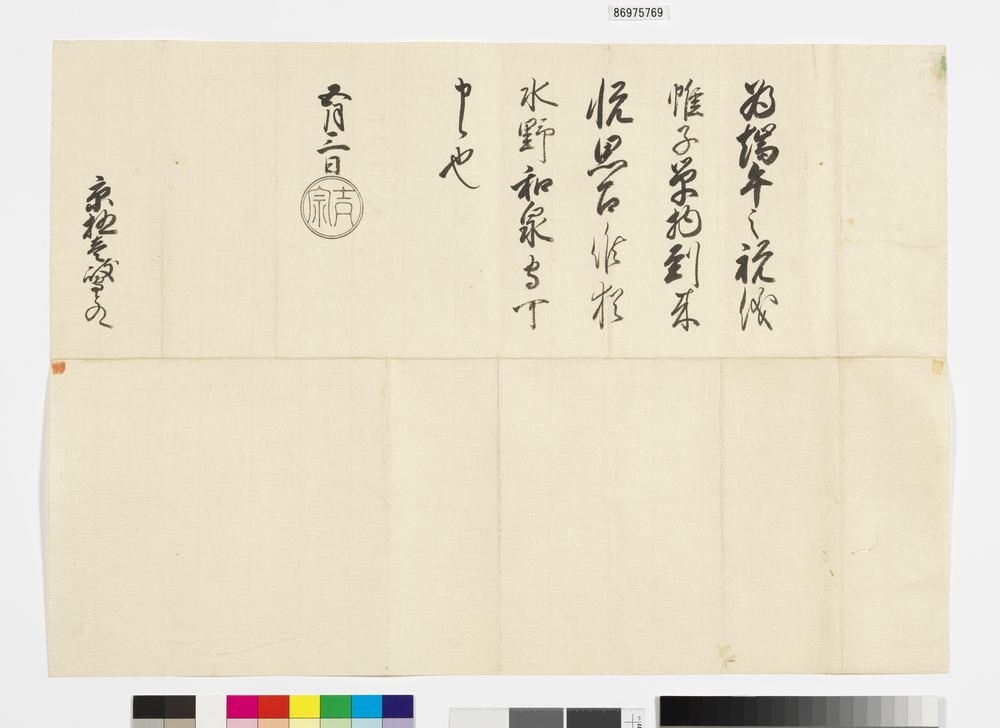 86975769
為端午之祝儀
帷子単物到来
悦思召候猶
水野和泉守可
申候也
五月三日
吉宗
京極壱岐守とのへ